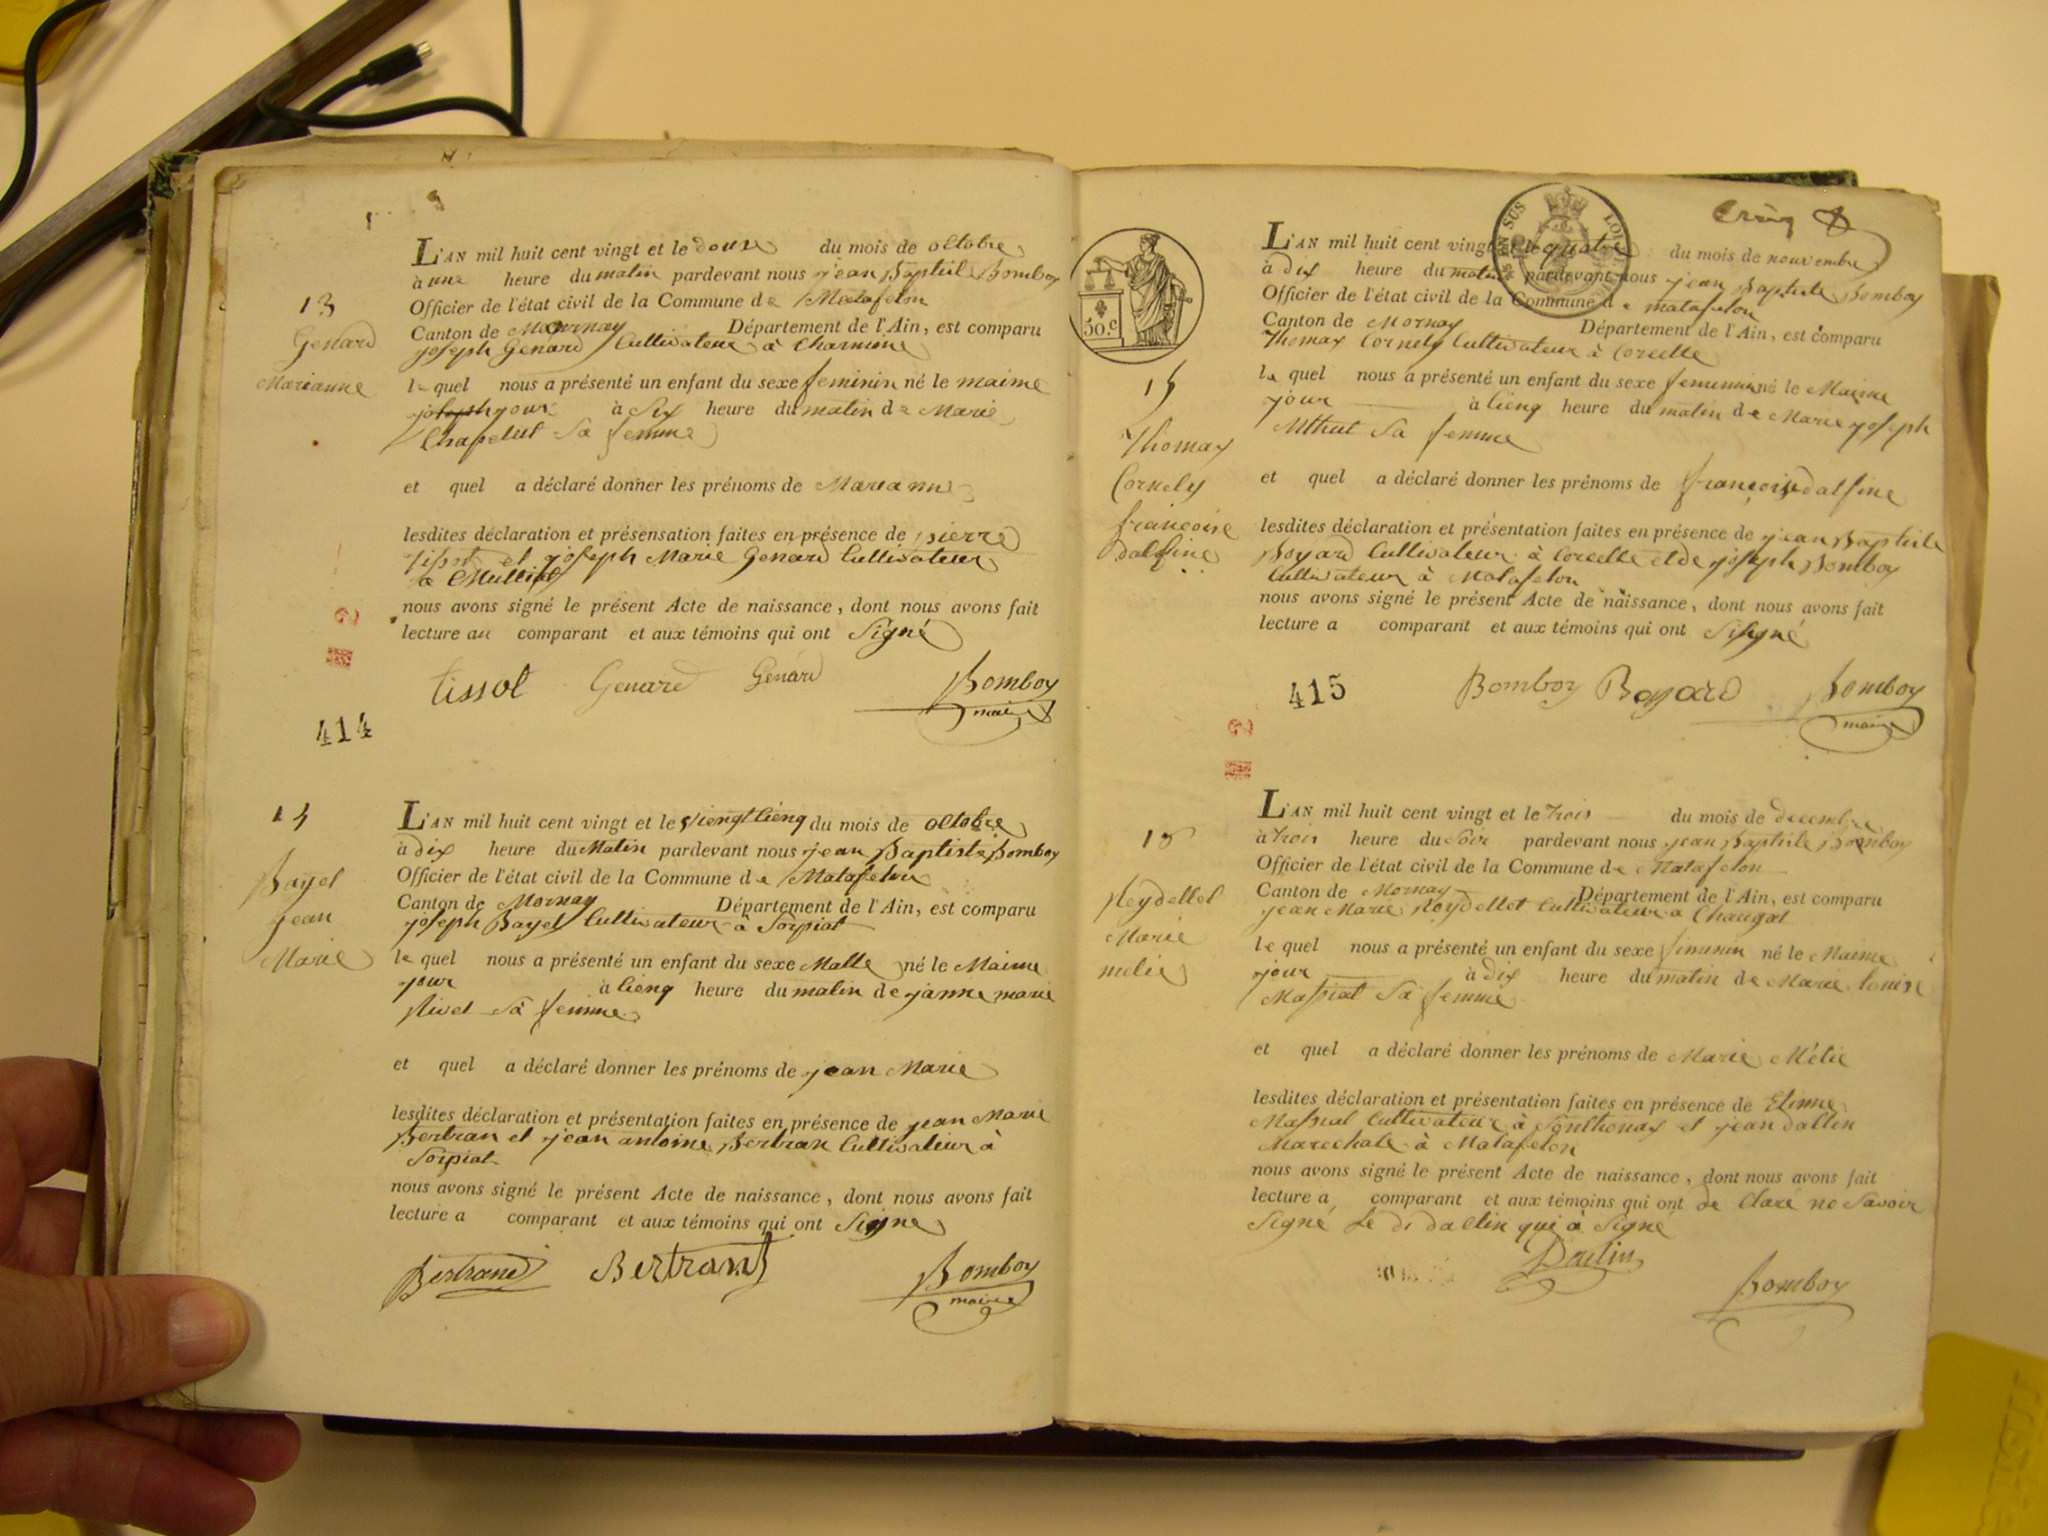 13
Genard
Marianne
L'AN mil huit cent vingt et le douze du mois de octobre
à une heure du matin pardevant nous jean Baptiste Bomboy
Officier de l'état civil de la Commune de Matafelon
Canton de Mornay Département de l'Ain, est comparu
joseph Genard Cultivateur à Charmine
le quel nous a présenté un enfant du sexe feminin né le maime
jour à Six heure du matin de Marie
Chapelut Sa femme
et quel a déclaré donner les prénoms de Marianne
lesdites déclaration et présensation faites en présence de pierre
Tissot et joseph Marie Genard Cultivateur
a
nous avons signé le présent Acte de naissance, dont nous avons fait
lecture au comparant et aux témoins qui ont Signé
tissot Genard Genard Bomboy
maire
414
14
Bayet
jean
Marie
L'AN mil huit cent vingt et le viengt cienq du mois de octobre
à dix heure du Matin pardevant nous jean Baptiste Bomboy
Officier de l'état civil de la Commune de Matafelon
Canton de Mornay Département de l'Ain, est comparu
joseph Bayet Cultivateur à Sorpiat
le quel nous a présenté un enfant du sexe Malle né le Maime
jour à cienq heure du matin de janne marie
Nivet Sa femme
et quel a déclaré donner les prénoms de jean Marie
lesdites déclaration et présentation faites en présence de jean Marie
Bertran et jean antoine Bertran Cultivateur à
Sorpiat
nous avons signé le présent Acte de naissance, dont nous avons fait
lecture a comparant et aux témoins qui ont Signe
Bertrand Bertrand Bomboy
maire
50.c
SUS
15
Thomas
Cornely
françoise
Dalfine
L'AN mil huit cent vingt et le quatre du mois de nouvembre
à dix heure du matin pardevant nous jean Baptiste Bomboy
Officier de l'état civil de la Commune de matafelon
Canton de Mornay Département de l'Ain, est comparu
Thomas Cornely Cultivateur à Corcelle
le quel nous a présenté un enfant du sexe feminin né le Maime
jour à cienq heure du matin de Marie joseph
Sa femme
et quel a déclaré donner les prénoms de françoise dalfine
lesdites déclaration et présentation faites en présence de jean Baptiste
Boyard Cultivateur à Corcelle et de joseph Bomboy
Cultivateur à Matafelon
nous avons signé le présent Acte de naissance, dont nous avons fait
lecture a comparant et aux témoins qui ont Signé
415 Bomboy Boyard Bomboy
maire
16
Reydellet
Marie
melie
L'AN mil huit cent vingt et le trois du mois de decembre
à trois heure du Soir pardevant nous jean Baptiste Bomboy
Officier de l'état civil de la Commune de Matafelon
Canton de Mornay Département de l'Ain, est comparu
jean Marie Reydellet Cultivateur a Chaugat
le quel nous a présenté un enfant du sexe feminin né le Maime
jour à dix heure du matin de Marie louise
Massiat Sa femme
et quel a déclaré donner les prénoms de Marie Mélie
lesdites déclaration et présentation faites en présence de Etienne
Massiat Cultivateur à Sonthonax et jean dallin
Marechale à Matafelon
nous avons signé le présent Acte de naissance, dont nous avons fait
lecture a comparant et aux témoins qui ont de Claré ne Savoir
Signé Le di dallin qui à Signé
Dallin
Bomboy